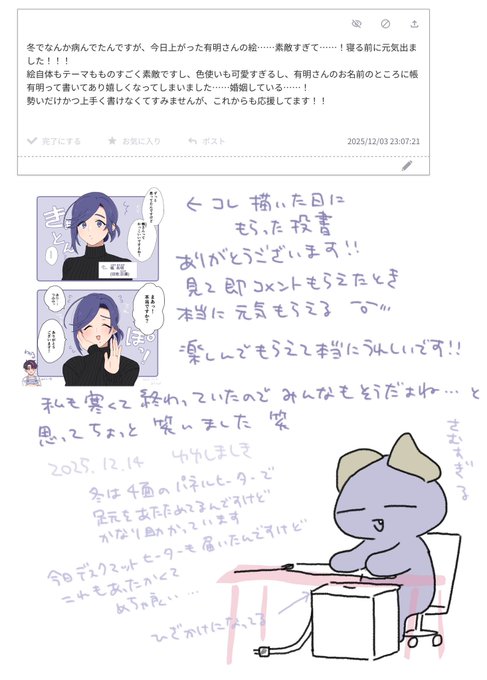 冬でなんか病んでたんですが、今日上がった有明さんの絵……素敵すぎて……！寝る前に元気出ま
した！！！
絵自体もテーマもものすごく素敵ですし、色使いも可愛すぎるし、有明さんのお名前のところに帳
有明って書いてあり嬉しくなってしまいました……婚姻している……！
勢いだけかつ上手く書けなくてすみませんが、これからも応援してます！！
完了にする
お気に入り
ポスト
2025/12/03 23:07:21
← コレ 描いた日に
もらった投書
ありがとうございます!!
見て即コメントもらえたとき
本当に 元気もらえる
楽しんでもらえて本当にうれしいです!!
きょとん
まあっ…
本当ですか？
ありがとう
ございます！
ぽっ!
私も寒くて 終わっていたので みんなもそうだよね… と
思って ちょっと 笑いました 笑
2025.12.14
冬は4面のパネルヒーターで
足元をあたためてるんですけど
かなり助かっています
今日デスクマットヒーターも届いたんですけど
これもあたたかくて
めちゃ良い…
ひざかけになってる
さむすぎる